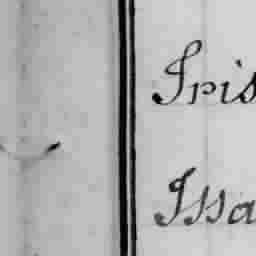 Iris
Issa